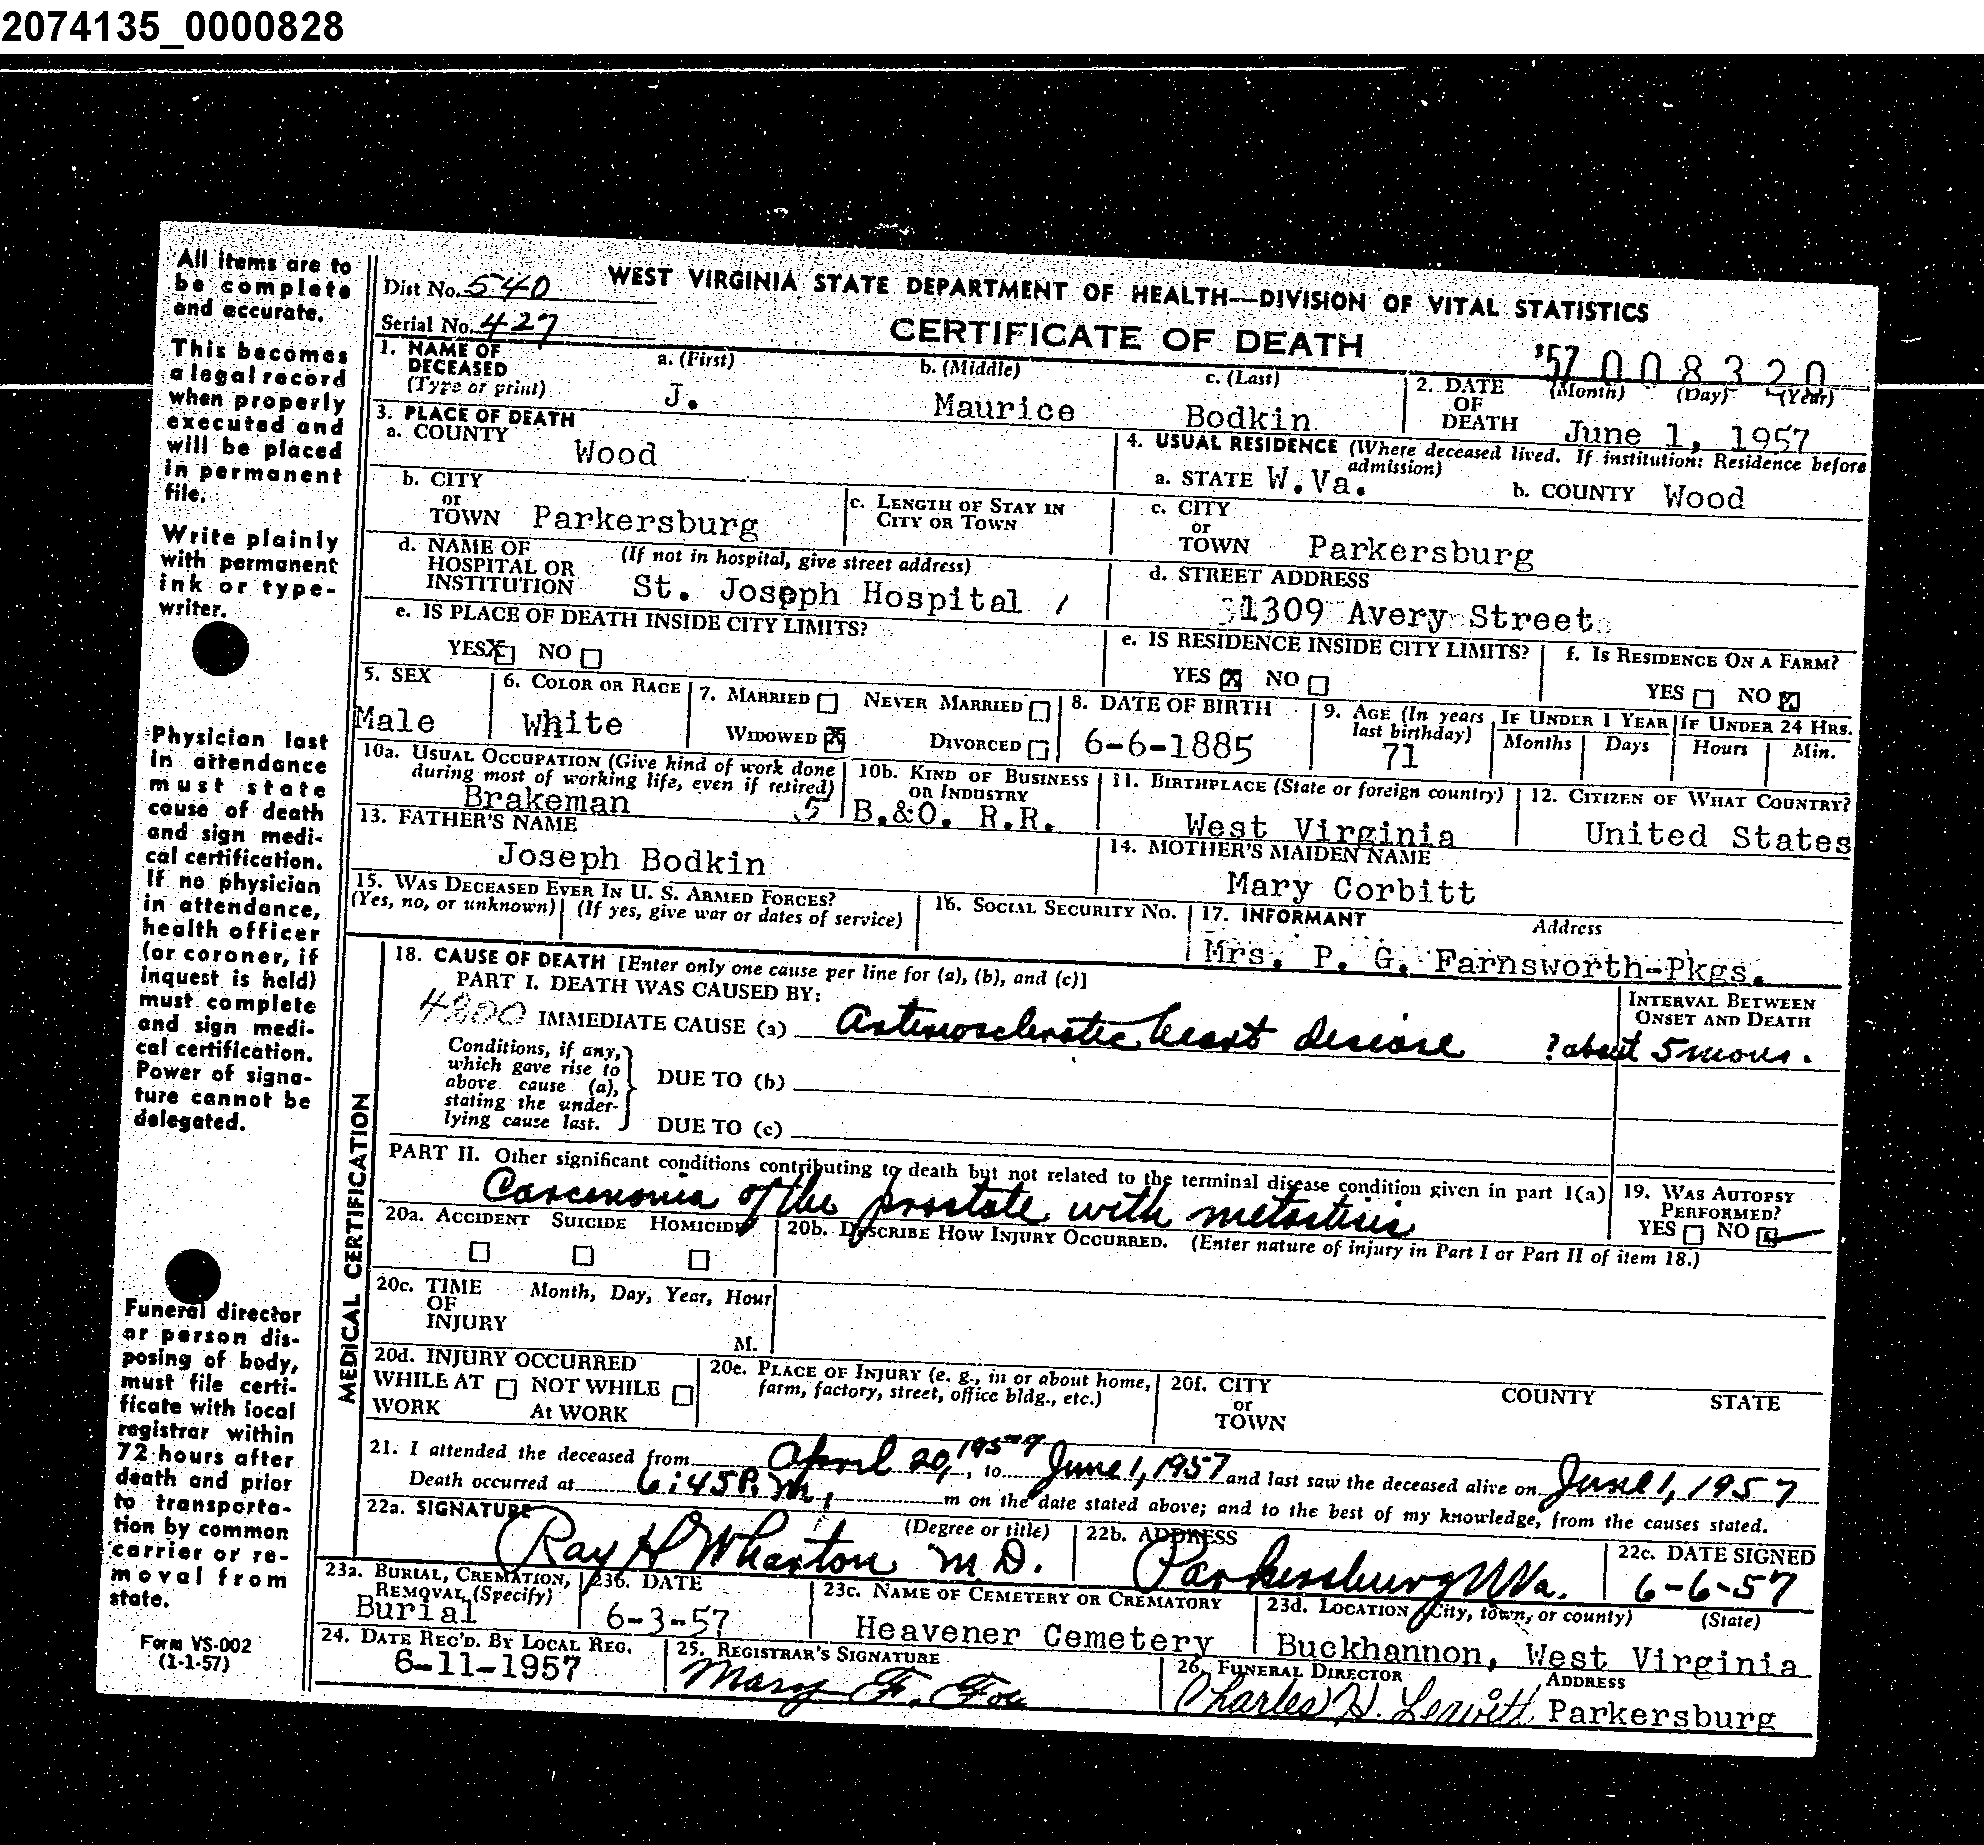 2074135_0000828
All items are to
be complete
and accurate.
This becomes
a legal record
when properly
executed and
will be placed
in permanent
file.
Write plainly
with permanent
ink or type-
writer.
Physician last
in attendance
must state
cause of death
and sign medi-
cal certification.
If no physician
in attendance,
health officer
(or coroner, if
inquest is held)
must complete
and sign medi-
cal certification.
Power of signa-
ture cannot be
delegated.
Funeral director
or person dis-
posing of body,
must file certi-
ficate with local
registrar within
72 hours after
death and prior
to transporta-
tion by common
carrier or re-
moval from
state.
Form VS-002
(1-1-57)
Dist No. 540 WEST VIRGINIA STATE DEPARTMENT OF HEALTH—DIVISION OF VITAL STATISTICS
Serial No. 427 CERTIFICATE OF DEATH '57 008320
1. NAME OF DECEASED (Type or print) a. (First) J. b. (Middle) Maurice c. (Last) Bodkin
2. DATE OF DEATH (Month) (Day) (Year) June 1, 1957
3. PLACE OF DEATH
a. COUNTY Wood
4. USUAL RESIDENCE (Where deceased lived. If institution: Residence before admission)
a. STATE W.Va. b. COUNTY Wood
b. CITY or TOWN Parkersburg c. LENGTH OF STAY IN CITY OR TOWN
c. CITY or TOWN Parkersburg
d. NAME OF HOSPITAL OR INSTITUTION (If not in hospital, give street address) St. Joseph Hospital /
d. STREET ADDRESS 1309 Avery Street
e. IS PLACE OF DEATH INSIDE CITY LIMITS?
YES X NO
e. IS RESIDENCE INSIDE CITY LIMITS?
YES X NO
f. IS RESIDENCE ON A FARM?
YES NO X
5. SEX Male
6. COLOR OR RACE White
7. MARRIED NEVER MARRIED
WIDOWED X DIVORCED
8. DATE OF BIRTH 6-6-1885
9. AGE (In years last birthday) 71
IF UNDER 1 YEAR Months Days
IF UNDER 24 HRS. Hours Min.
10a. USUAL OCCUPATION (Give kind of work done during most of working life, even if retired) Brakeman 5
10b. KIND OF BUSINESS OR INDUSTRY B.&O. R.R.
11. BIRTHPLACE (State or foreign country) West Virginia
12. CITIZEN OF WHAT COUNTRY? United States
13. FATHER'S NAME Joseph Bodkin
14. MOTHER'S MAIDEN NAME Mary Corbitt
15. WAS DECEASED EVER IN U. S. ARMED FORCES?
(Yes, no, or unknown) (If yes, give war or dates of service)
16. SOCIAL SECURITY NO.
17. INFORMANT Address
Mrs. P. G. Farnsworth-Pkgs.
MEDICAL CERTIFICATION
18. CAUSE OF DEATH [Enter only one cause per line for (a), (b), and (c)]
PART I. DEATH WAS CAUSED BY:
INTERVAL BETWEEN ONSET AND DEATH
4200 IMMEDIATE CAUSE (a) Arteriosclerotic heart disease ? about 5 mons.
Conditions, if any, which gave rise to above cause (a), stating the under-lying cause last.
DUE TO (b)
DUE TO (c)
PART II. Other significant conditions contributing to death but not related to the terminal disease condition given in part 1(a)
Carcinoma of the prostate with metastisis
19. WAS AUTOPSY PERFORMED?
YES NO
20a. ACCIDENT SUICIDE HOMICIDE
20b. DESCRIBE HOW INJURY OCCURRED. (Enter nature of injury in Part I or Part II of item 18.)
20c. TIME OF INJURY Month, Day, Year, Hour
M.
20d. INJURY OCCURRED
WHILE AT WORK NOT WHILE At WORK
20e. PLACE OF INJURY (e. g., in or about home, farm, factory, street, office bldg., etc.)
20f. CITY or TOWN COUNTY STATE
21. I attended the deceased from April 20, 1957, to June 1, 1957 and last saw the deceased alive on June 1, 1957
Death occurred at 6:45 P. m, m on the date stated above; and to the best of my knowledge, from the causes stated.
22a. SIGNATURE (Degree or title) Ray H Wharton M.D.
22b. ADDRESS Parkersburg W Va.
22c. DATE SIGNED 6-6-57
23a. BURIAL, CREMATION, REMOVAL (Specify) Burial
23b. DATE 6-3-57
23c. NAME OF CEMETERY OR CREMATORY Heavener Cemetery
23d. LOCATION (City, town, or county) (State) Buckhannon, West Virginia
24. DATE REC'D. BY LOCAL REG. 6-11-1957
25. REGISTRAR'S SIGNATURE Mary F. Fox
26. FUNERAL DIRECTOR ADDRESS
Charles H. Leavitt Parkersburg